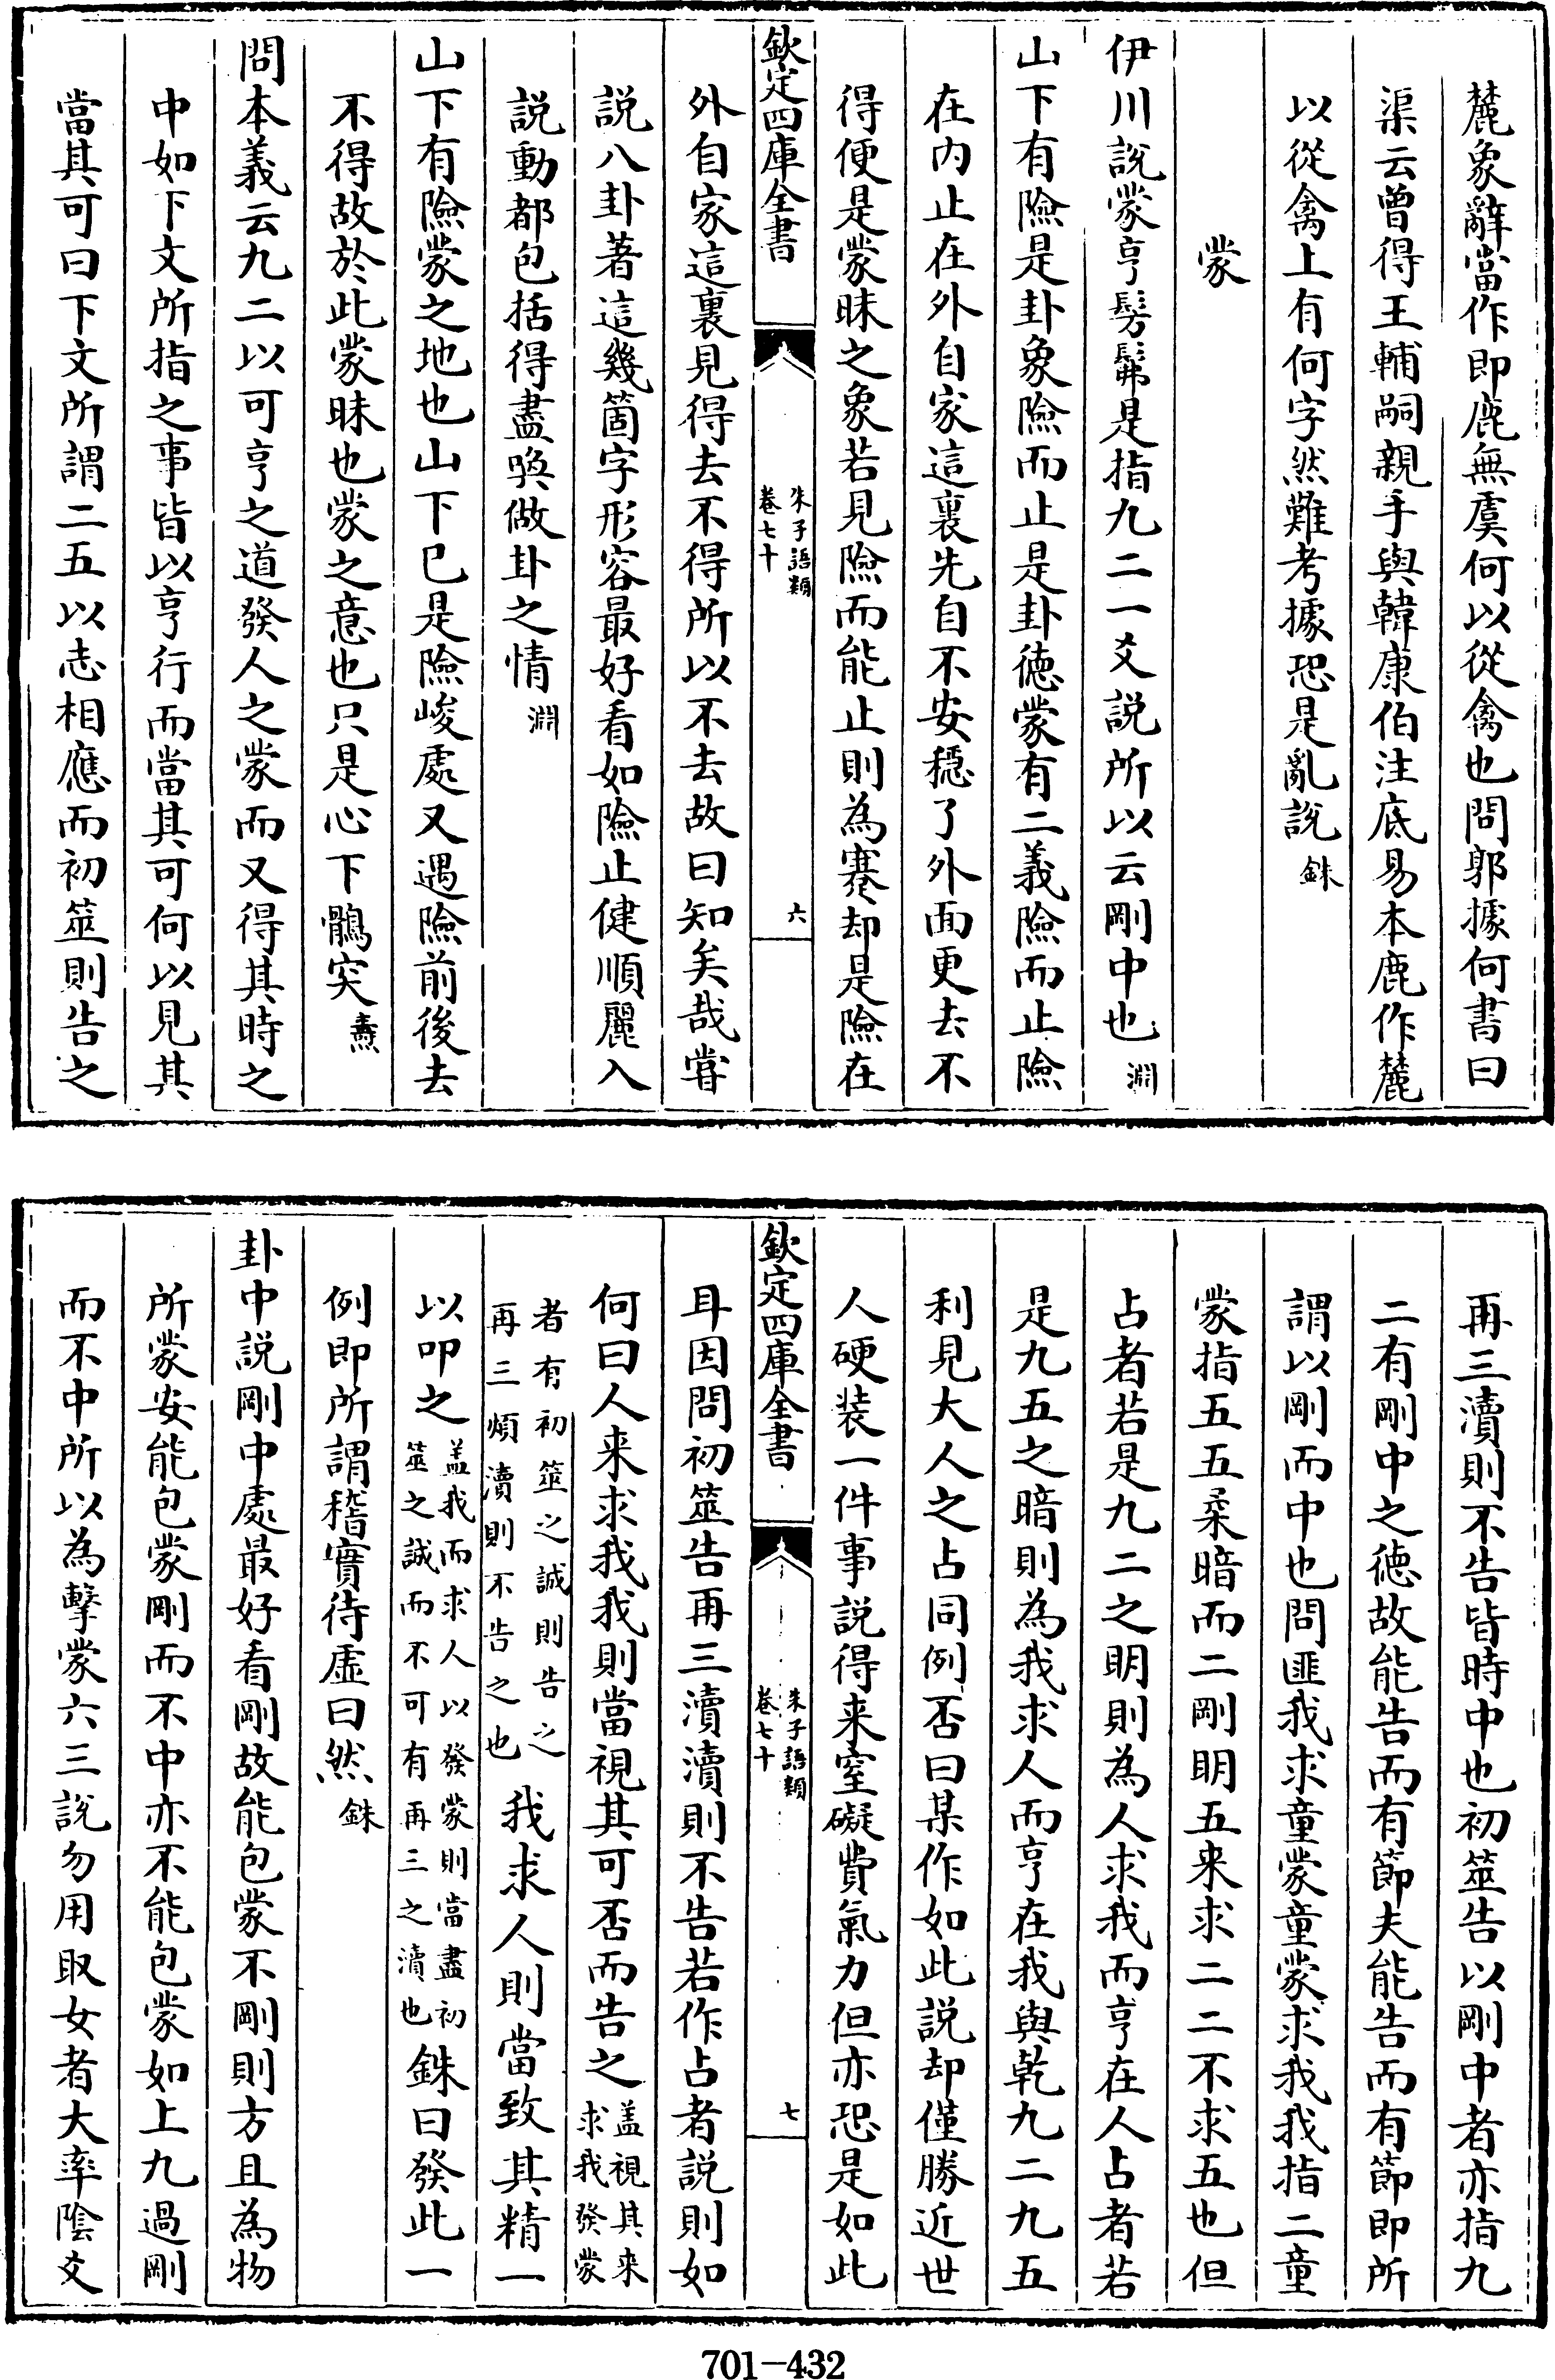 麓象辭當作即鹿無虞何以從禽也問郭據何書曰
渠云曽得王輔嗣親手與韓康伯注底易本鹿作麓
以從禽上有何字然難考據恐是亂說銖
蒙
伊川說蒙亨髣髴是指九二一爻說所以云剛中也淵
山下有險是卦象險而止是卦徳蒙有二義險而止險
在内止在外自家這裏先自不安穩了外面更去不
得便是蒙昧之象若見險而能止則為蹇却是險在
欽定四庫全書
朱子語類
卷七十
六
外自家這裏見得去不得所以不去故曰知矣哉嘗
説八卦著這幾箇字形容最好看如險止健順麗入
説動都包括得盡喚做卦之情淵
山下有險蒙之地也山下已是險峻處又遇險前後去
不得故於此蒙昧也蒙之意也只是心下鶻突燾
問本義云九二以可亨之道發人之蒙而又得其時之
中如下文所指之事皆以亨行而當其可何以見其
當其可曰下文所謂二五以志相應而初筮則告之
再三瀆則不告皆時中也初筮告以剛中者亦指九
二有剛中之徳故能告而有節夫能告而有節即所
謂以剛而中也問匪我求童蒙童蒙求我我指二童
蒙指五五柔暗而二剛明五来求二二不求五也但
占者若是九二之明則為人求我而亨在人占者若
是九五之暗則為我求人而亨在我與乾九二九五
利見大人之占同例否曰某作如此説却僅勝近世
人硬装一件事説得来窒礙費氣力但亦恐是如此
欽定四庫全書
朱子語類
卷七十
七
耳因問初筮告再三瀆瀆則不告若作占者説則如
何曰人来求我我則當視其可否而告之盖視其来求我發蒙
者有初筮之誠則告之再三煩瀆則不告之也我求人則當致其精一
以叩之盖我而求人以發蒙則當盡初筮之誠而不可有再三之瀆也銖曰發此一
例即所謂稽實待虛曰然銖
卦中説剛中處最好看剛故能包蒙不剛則方且為物
所蒙安能包蒙剛而不中亦不能包蒙如上九過剛
而不中所以為擊蒙六三説勿用取女者大率陰爻
701-432